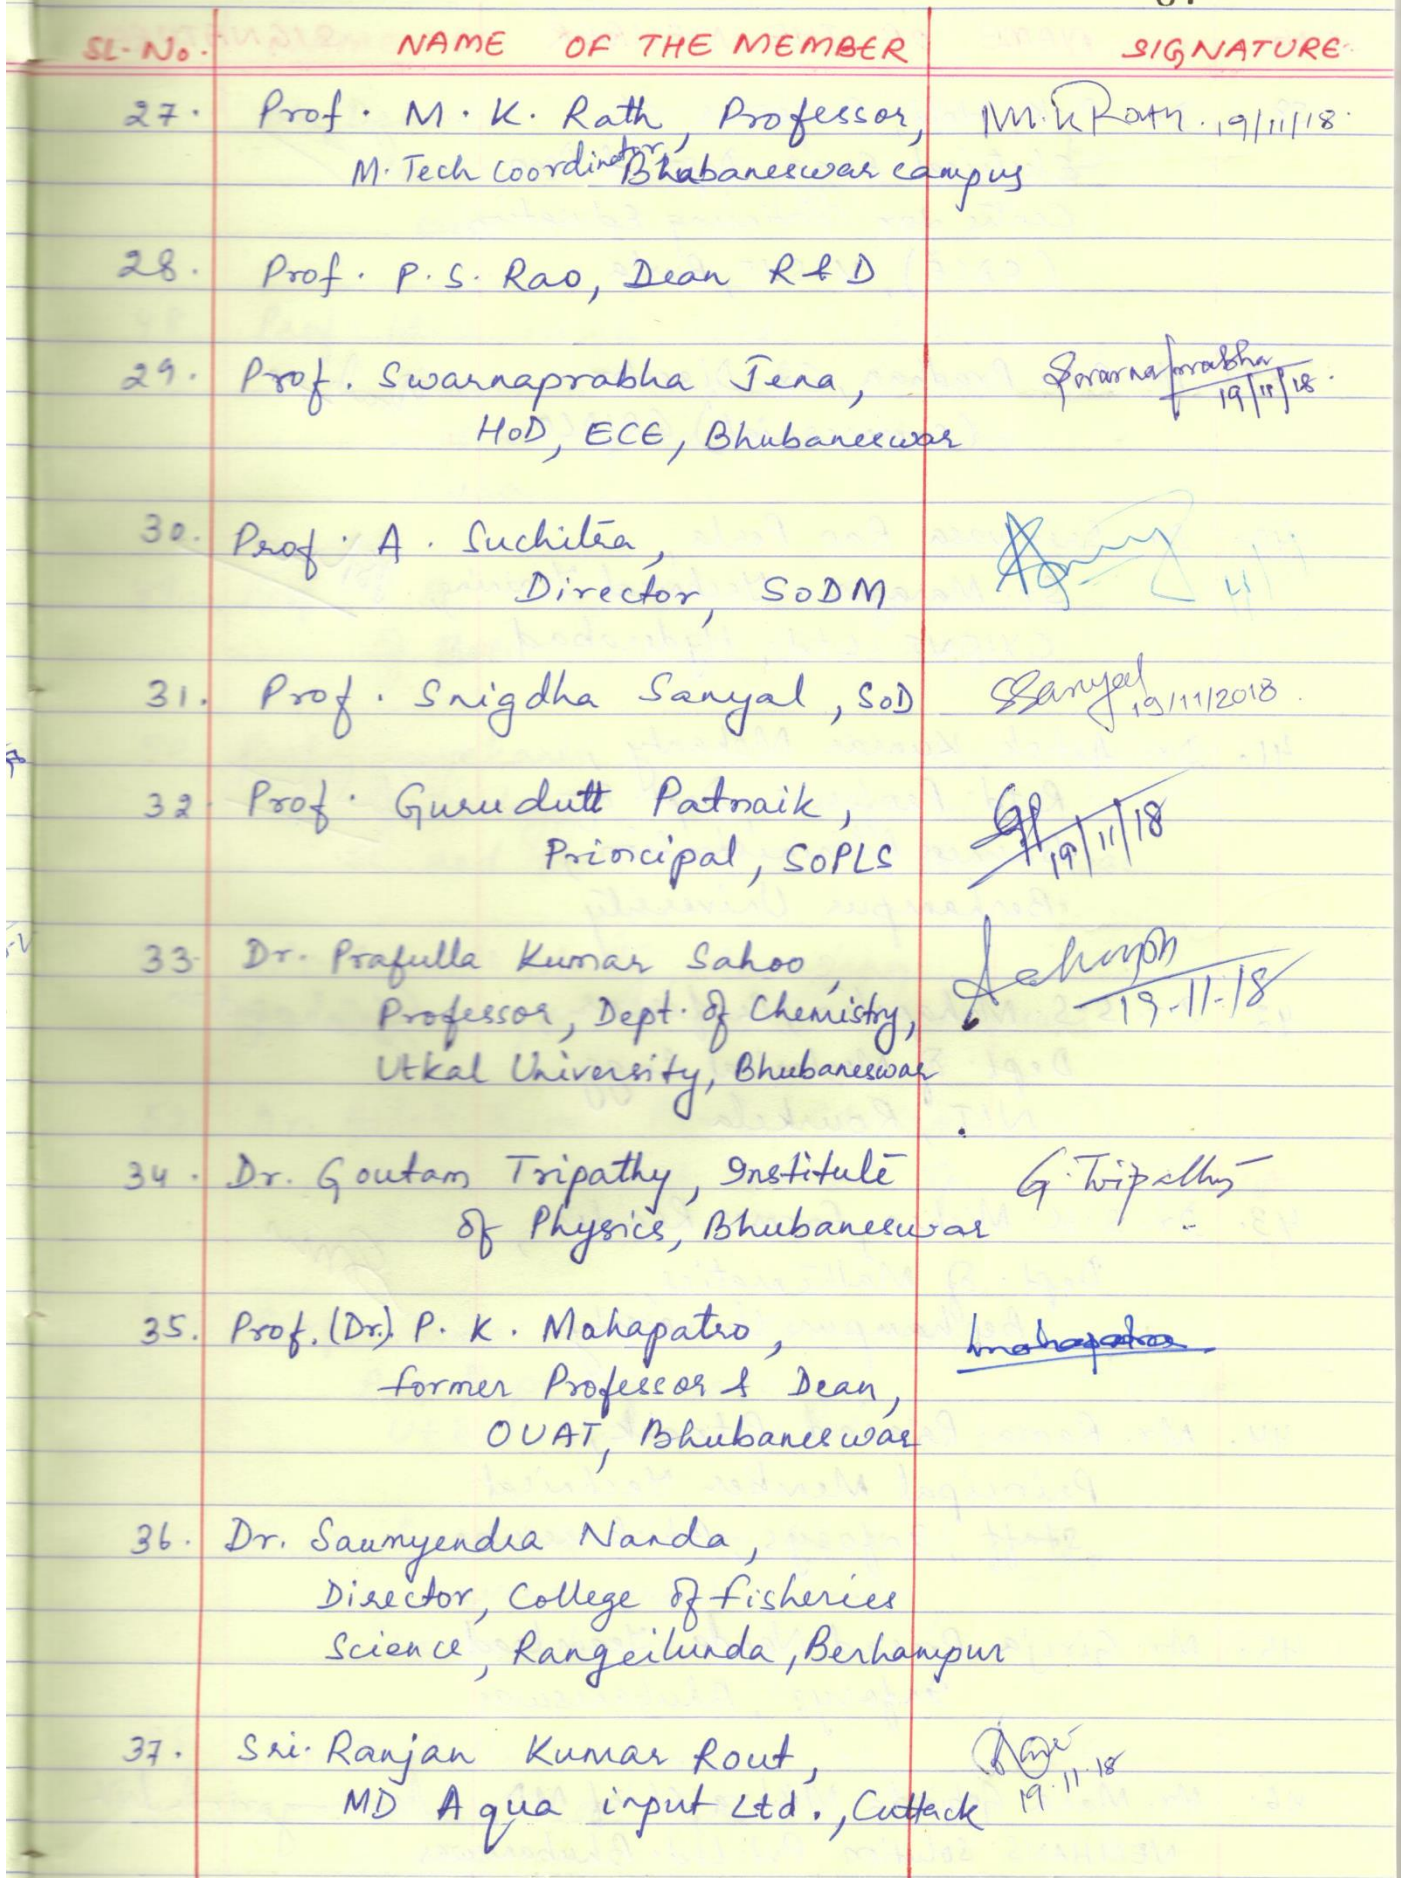 SL-No. NAME OF THE MEMBER SIGNATURE
27. Prof. M. K. Rath, Professor, M.K Rath. 19/11/18.
M.Tech Coordinator, Bhubaneswar campus
28. Prof. P. S. Rao, Dean R & D
29. Prof. Swarnaprabha Jena, Swarnaprabha
19/11/18.
HoD, ECE, Bhubaneswar
30. Prof. A. Suchitra,
Director, SODM
31. Prof. Snigdha Sanyal, SoD SSanyal
19/11/2018
32. Prof. Gurudutt Patnaik, GP
Principal, SOPLS 19/11/18
33. Dr. Prafulla Kumar Sahoo,
Professor, Dept. of Chemistry, 19-11-18
Utkal University, Bhubaneswar
34. Dr. Goutam Tripathy, Institute G. Tripathy
of Physics, Bhubaneswar
35. Prof. (Dr.) P. K. Mahapatro,
former Professor & Dean,
OUAT, Bhubaneswar
36. Dr. Saumyendra Nanda,
Director, College of fisheries
Science, Rangeilunda, Berhampur
37. Sri. Ranjan Kumar Rout,
MD Aqua input Ltd., Cuttack 19.11.18